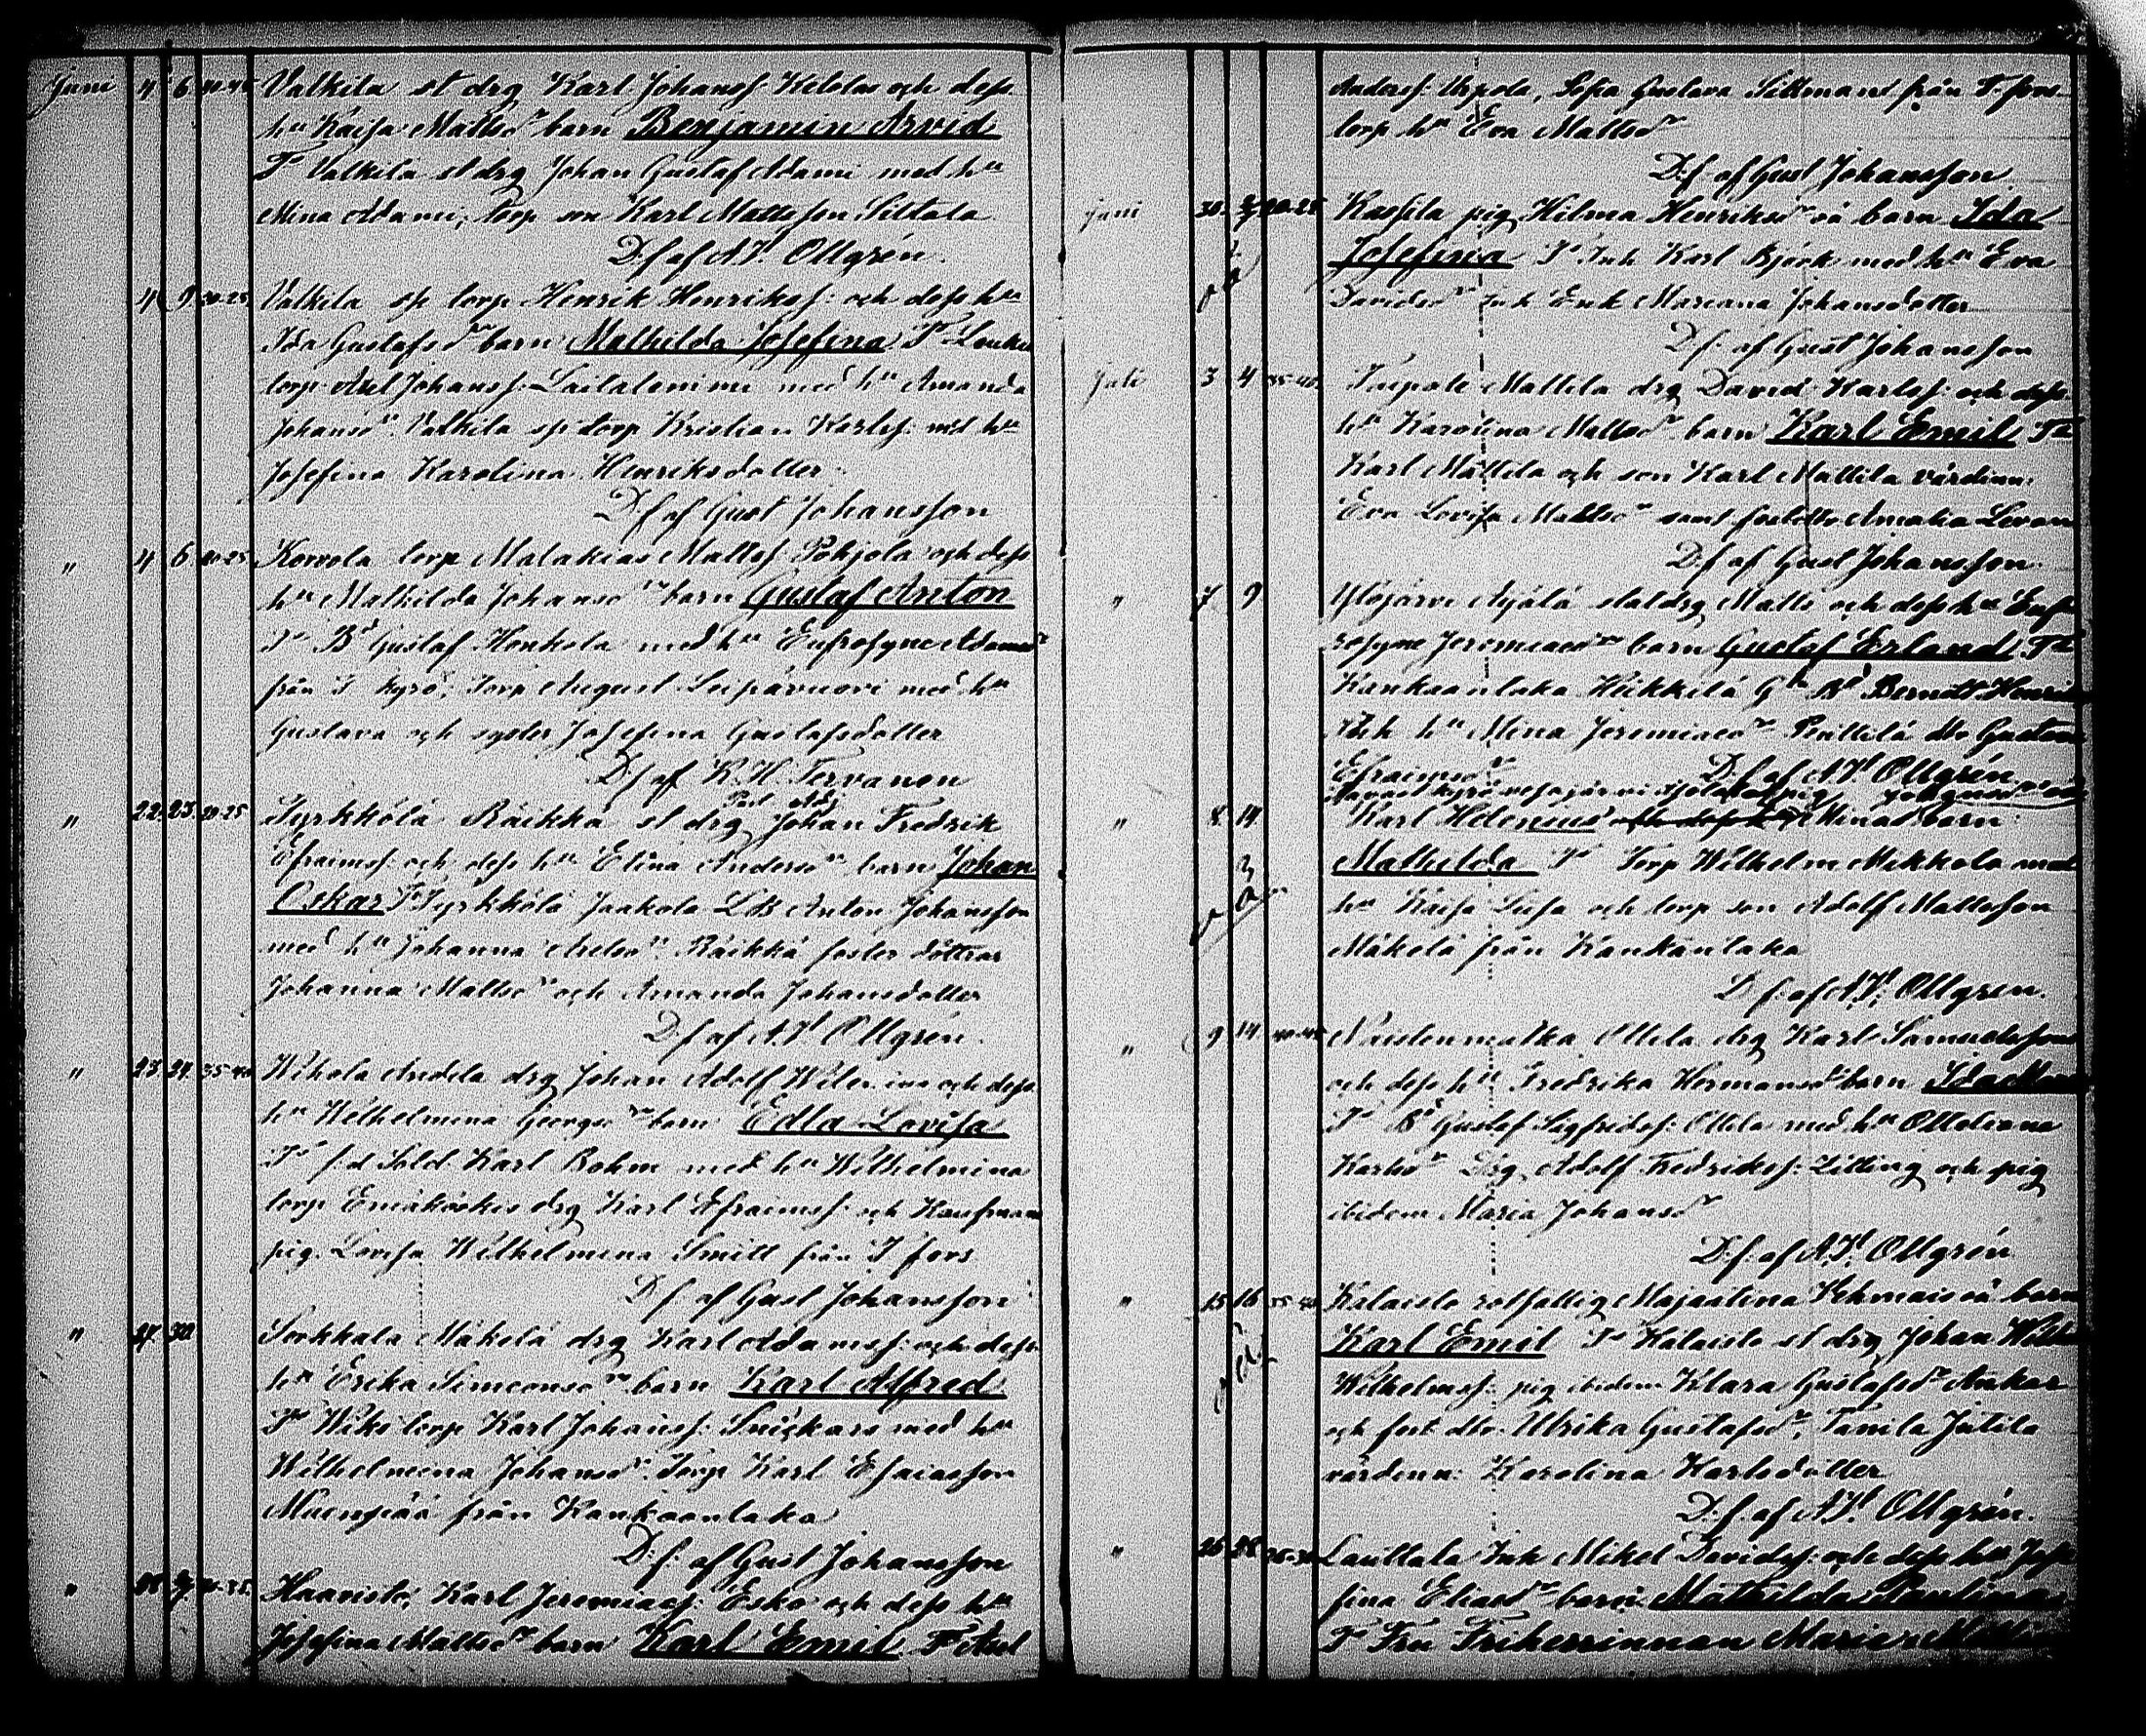 Juni 4 6 40-45 Valkila st drg Karl Johanss: Kelolas och dess
hu Kaisa Mattsdr barn Benjamin Arvid
Fr Valkila st drg Johan Gustaf Adami med hu
Mina Adami, torp son Karl Mattsson Siltala
D: f af A. Fl Ollgrén.
4 9 20-25 Valkila sp torp Henrik Henrikss: och dess hu
Ida Gustafsdr barn Mathilda Josefina Fr
torp Axel Johanss: Laitalanimi med hu Amanda
Johansdr. Valkila sp torp Kristian Karlss: med hu
Josefina Karolina Henriksdotter
D: f af Gust Johansson
" 4 6 20-25 Korvola torp Malakias Mattss Pohjola och dess
hu Mathilda Johansdr barn Gustaf Anton
Fr Bd Gustaf Honkola med hu Eufrosyne
från T kyrö, Torp August med hu
Gustava och syster Josefina Gustafsdotter
D: f af K. H. Tervanen
" 22 23 20-25 Syrkkölä Räikkä st drg Johan Fredrik
Efraimss: och dess hu Elina Andersdr barn Johan
Oskar Fr Syrkkölä Jaakola LB Anton Johansson
med hu Johanna Räikkä foster döttrar
Johanna Mattsdr och Amanda Johansdotter
D: f af A. Fl Ollgrén.
" 23 24 35-40 Wihola Andela drg Johan Adolf och dess
hu Wilhelmina Georgsdr barn Edla Lovisa
Fr f d Sold. Karl Bohm med hu Wilhelmina
torp drg Karl Efraimss: och
pig. Lovisa Wilhelmina Smitt från T fors
D: f: af Gust Johansson
" 27 30 Sorkkala Mäkelä drg Karl Adamss: och dess
hu Erika Simeonsdr barn Karl Alfred
Fr torp Karl Johanss: Snickars med hu
Wilhelmina Johansdr. Torp Karl Esaiasson
från Kankaantaka
D: f: af Gust Johansson
" Haavisto, Karl Jeremiass: Esko och dess hu
Josefina Mattsdr barn Karl Emil Fr Axel
Anderss: Sofia Gustava från T. fors
torp hu Eva Mattsdr
D: f af Gust Johansson.
juni 30 20-25 Kassila pig Hilma Henriksdr oä barn Ida
Josefina Fr Inh Karl Björk med hu Eva
Davidsdr Inh Enk Mariana Johansdotter
D: f: af Gust Johansson
Juli 3 4 35-40 Taipale Mattila drg David Karlss: och dess
hu Karolina Mattsdr barn Karl Emil Fr
Karl Mattila och son Karl Mattila värdinn:
Eva Lovisa Mattsdr samt Amalia
D: f af Gust Johansson.
" 7 9 Ylöjärvi Äijälä staldrg Matts och dess hu Euf
rosyne Jeremiasdr barn Gustaf Erland Fr
Kankaantaka Heikkilä Gla Bd Berndt Henriks
och hu Mina Jeremiasdr Penttilä dtr Gustava
Efraimsdr D: f: af A. Fl Ollgrén
" 8 14 Karl Helenius Minas barn
Mathilda Fr Torp Wilhelm Mikkola med
hu Kaisa Liisa och torp son Adolf Mattsson
Mäkelä från Kankantaka
D: f: af A. Fl. Ollgren.
" 9 14 40-45 Naistenmatka Ottila drg Karl Samuelsson
och dess hu Fredrika Hermansdr barn Ida
Fr Bd Gustaf Sigfridss: Ottila med hu Ottiliana
Karlsdr Drg Adolf Fredrikss: och pig
ibidem Maria Johansdr
D: f: af A. Fl. Ollgrén
" 15 16 35-40 Kalaisto rotfattig Majastina oä barn
Karl Emil Fr Kalaisto st drg Johan
Wilhelmss: pig ibidem Klara Gustafsdr Ankar
och fost dtr Ulrika Gustafsdr, Tanila Jutila
värdinn: Karolina Karlsdotter
D: f: af A. Fl. Ollgrén.
" 26 28 Lauttala Inh Mikel Davidss: och dess hu Jose
fina Eliasdr barn Mathilda Paulina
Fr Fru Friherrinnan Maria